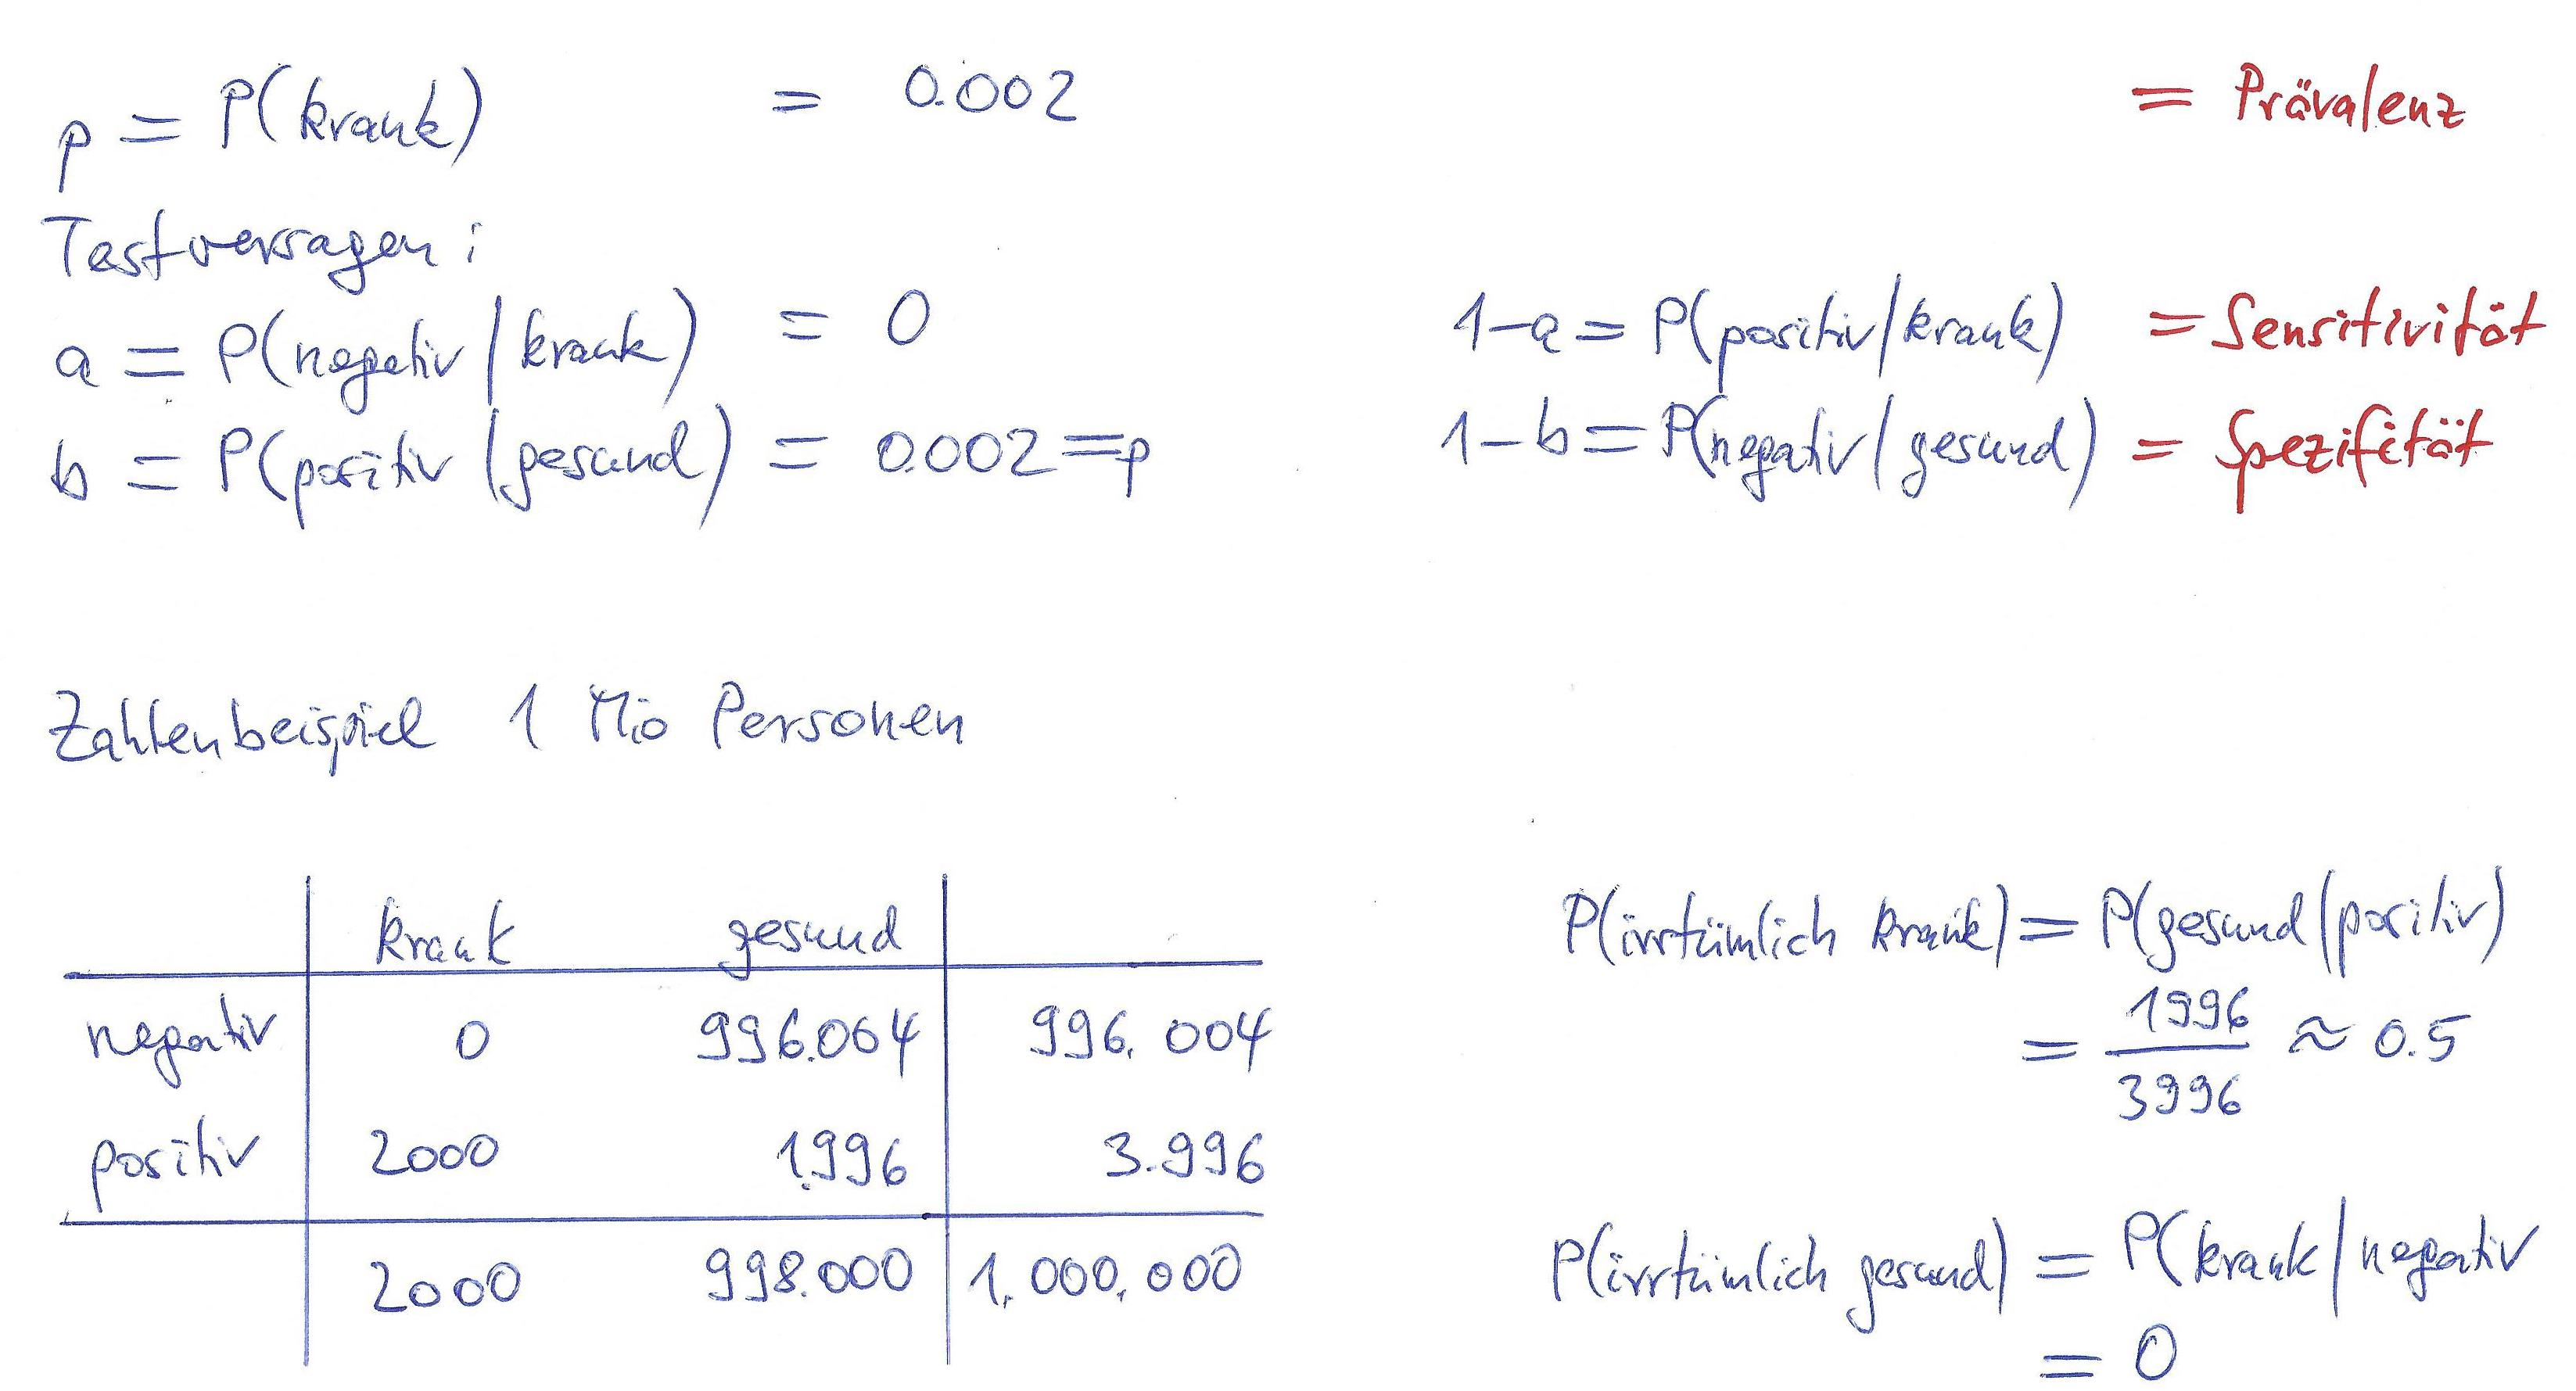 p = P(krank) = 0.002 = Prävalenz
Testversagen:
a = P(negativ | krank) = 0 1-a = P(positiv | krank) = Sensitivität
b = P(positiv | gesund) = 0.002 = p 1-b = P(negativ | gesund) = Spezifität
Zahlenbeispiel 1 Mio Personen
krank gesund
negativ 0 996.004 996.004
positiv 2000 1.996 3.996
2000 998.000 1.000.000
P(irrtümlich krank) = P(gesund | positiv)
= 1996 / 3996 ≈ 0.5
P(irrtümlich gesund) = P(krank | negativ
= 0